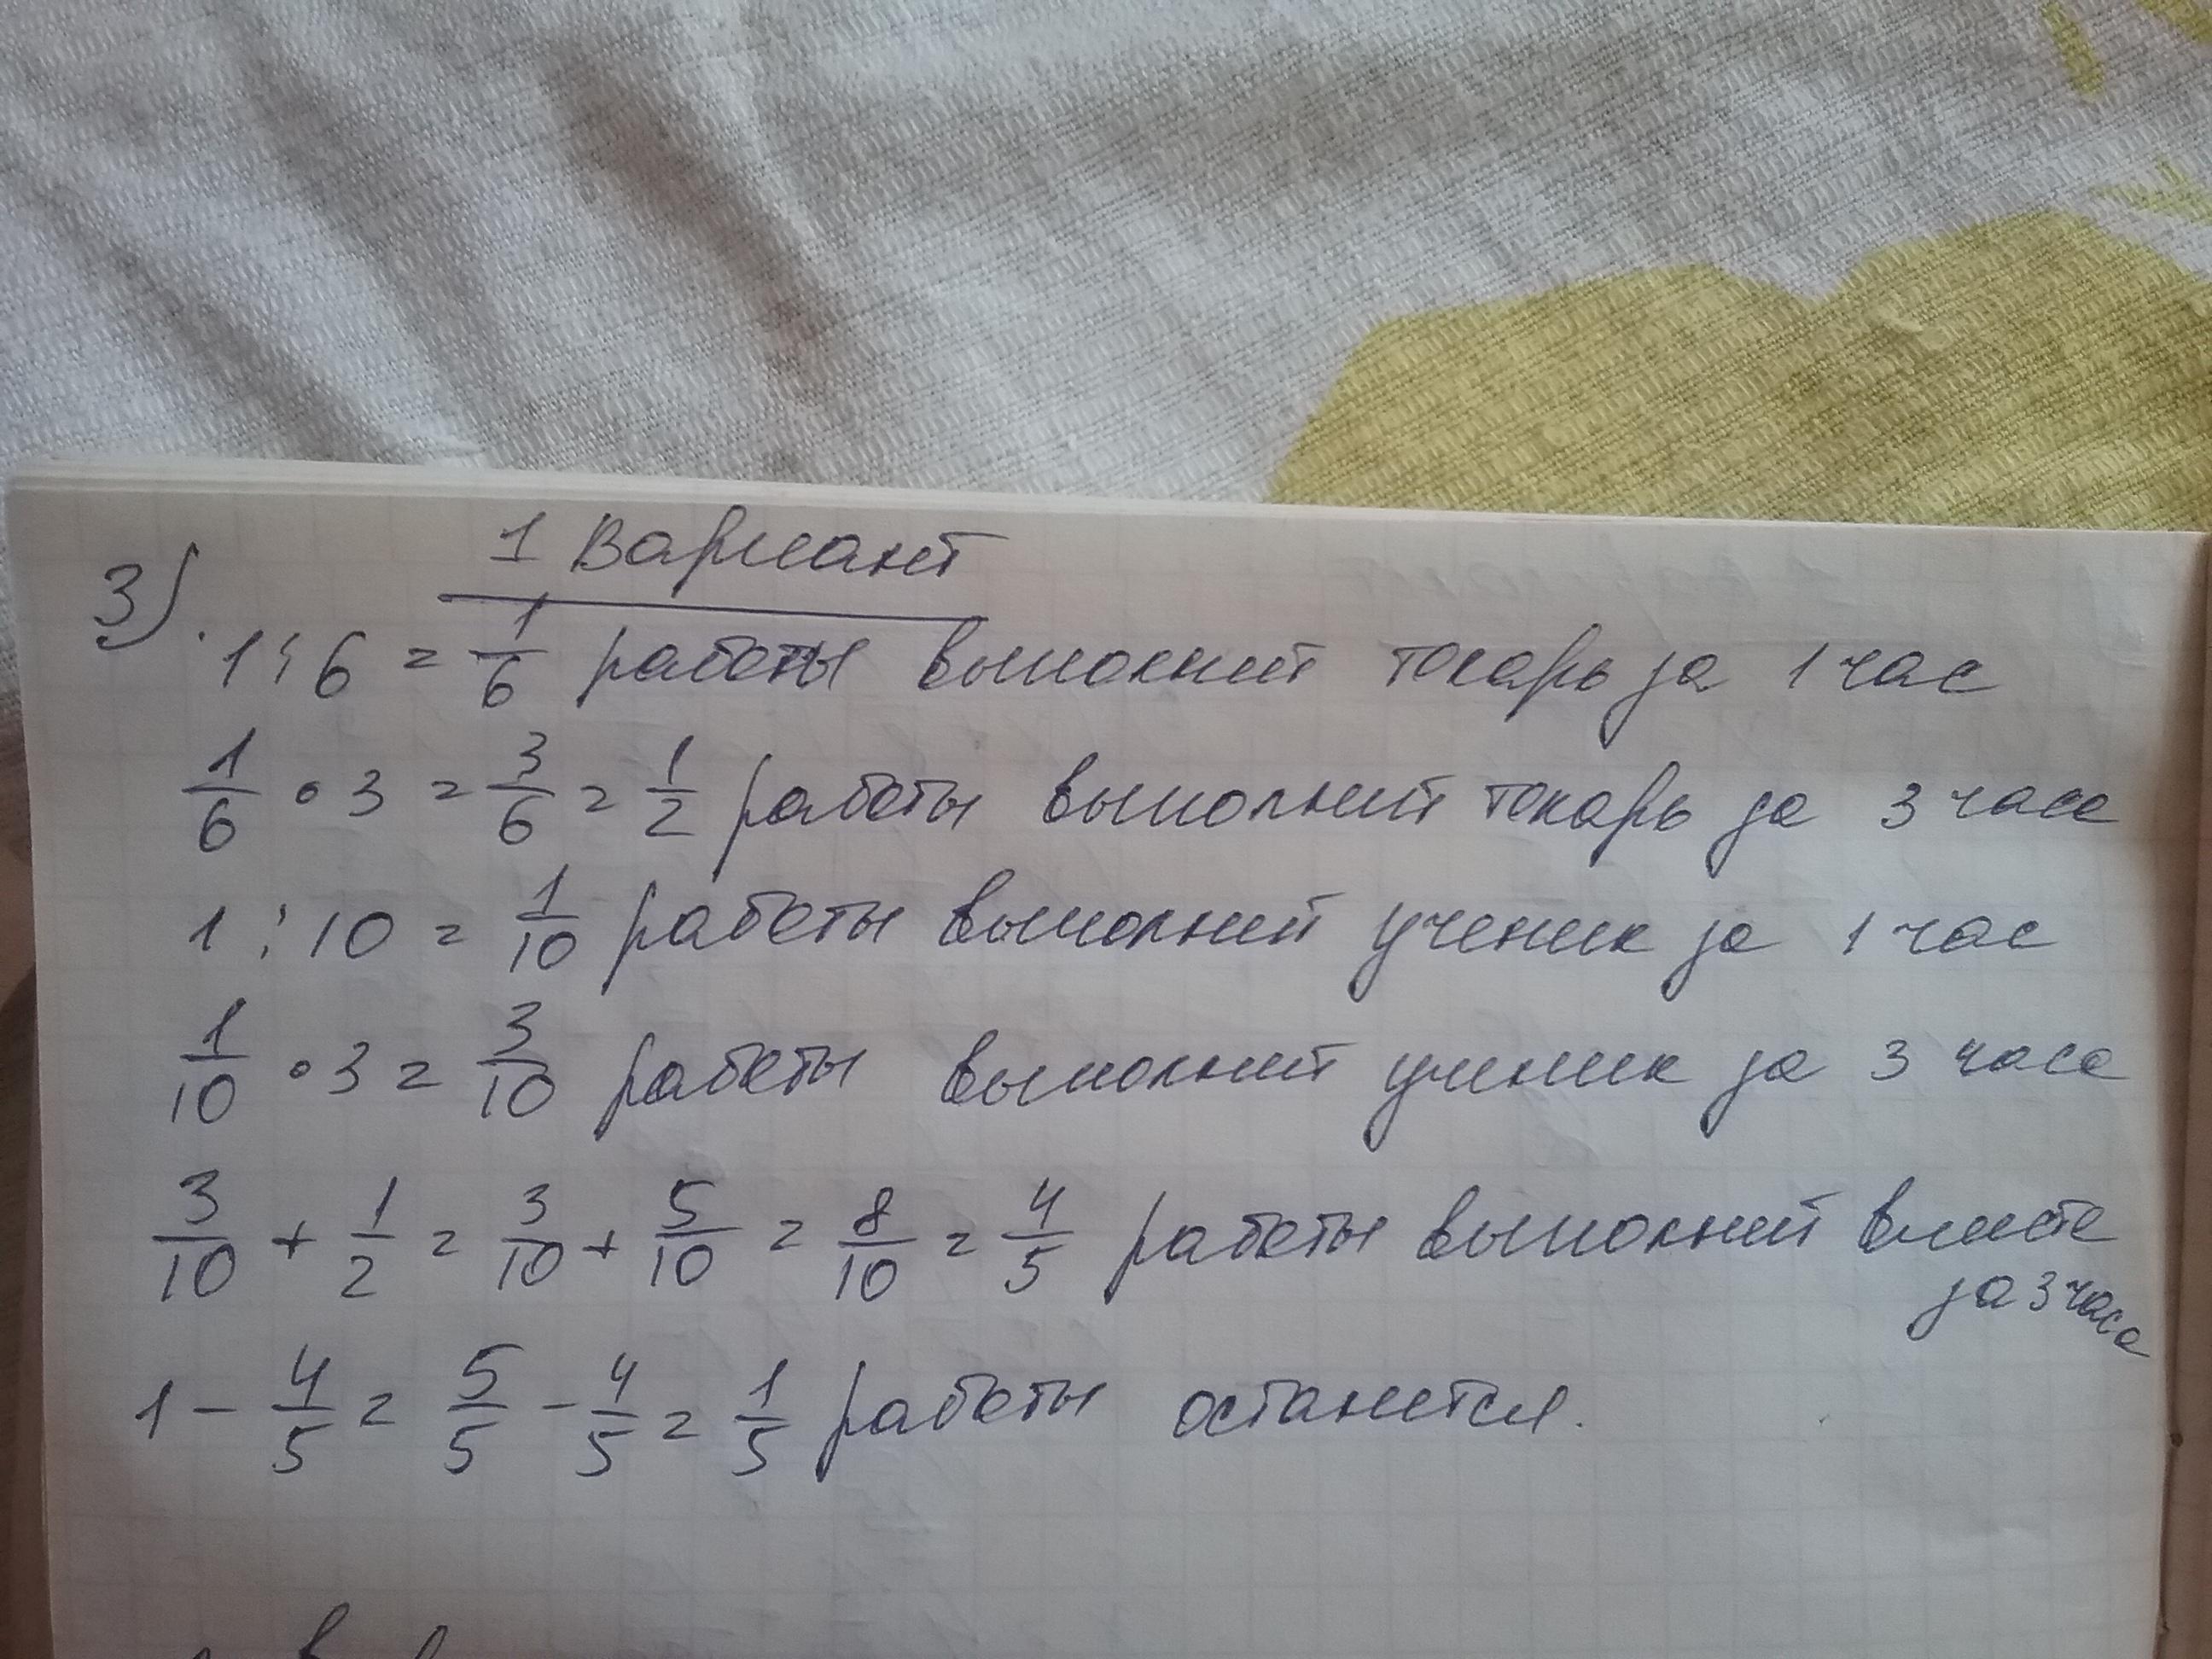 1 Вариант
3).
1 : 6 = 1/6 работы выполнит токарь за 1 час
1/6 • 3 = 3/6 = 1/2 работы выполнит токарь за 3 часа
1 : 10 = 1/10 работы выполнит ученик за 1 час
1/10 • 3 = 3/10 работы выполнит ученик за 3 часа
3/10 + 1/2 = 3/10 + 5/10 = 8/10 = 4/5 работы выполнит вместе
за 3 часа
1 - 4/5 = 5/5 - 4/5 = 1/5 работы останется.